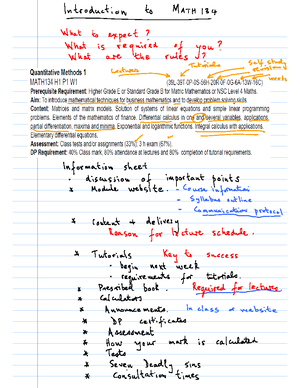 Introduction to MATH 134
What to expect ?
What is required of you?
What are the rules ?
Lectures
Tutorials
Self study
weeks
Quantitative Methods 1
MATH134 H1 P1 W1
(39L-39T-0P-0S-56H-20R-0F-0G-6A-13W-16C)
Prerequisite Requirement: Higher Grade E or Standard Grade B for Matric Mathematics or NSC Level 4 Maths.
Aim: To introduce mathematical techniques for business mathematics and to develop problem solving skills.
Content: Matrices and matrix models. Solution of systems of linear equations and simple linear programming
problems. Elements of the mathematics of finance. Differential calculus in one and several variables, applications,
partial differentiation, maxima and minima. Exponential and logarithmic functions. Integral calculus with applications.
Elementary differential equations.
Assessment: Class tests and/or assignments (33%); 3 h exam (67%).
DP Requirement: 40% Class mark, 80% attendance at lectures and 80% completion of tutorial requirements.
Information sheet
- discussion of important points
* Module website. - Course information
- Syllabus outline
- Communications protocol
* Content & delivery
Reason for lecture schedule.
* Tutorials Key to success
- begin next week
- requirements for tutorials.
* Prescribed book. Required for lectures
* Calculators
* Announcements. In class & website
* DP certificates
* Assessment
* How your mark is calculated
* Tests
* Seven Deadly sins
* Consultation times